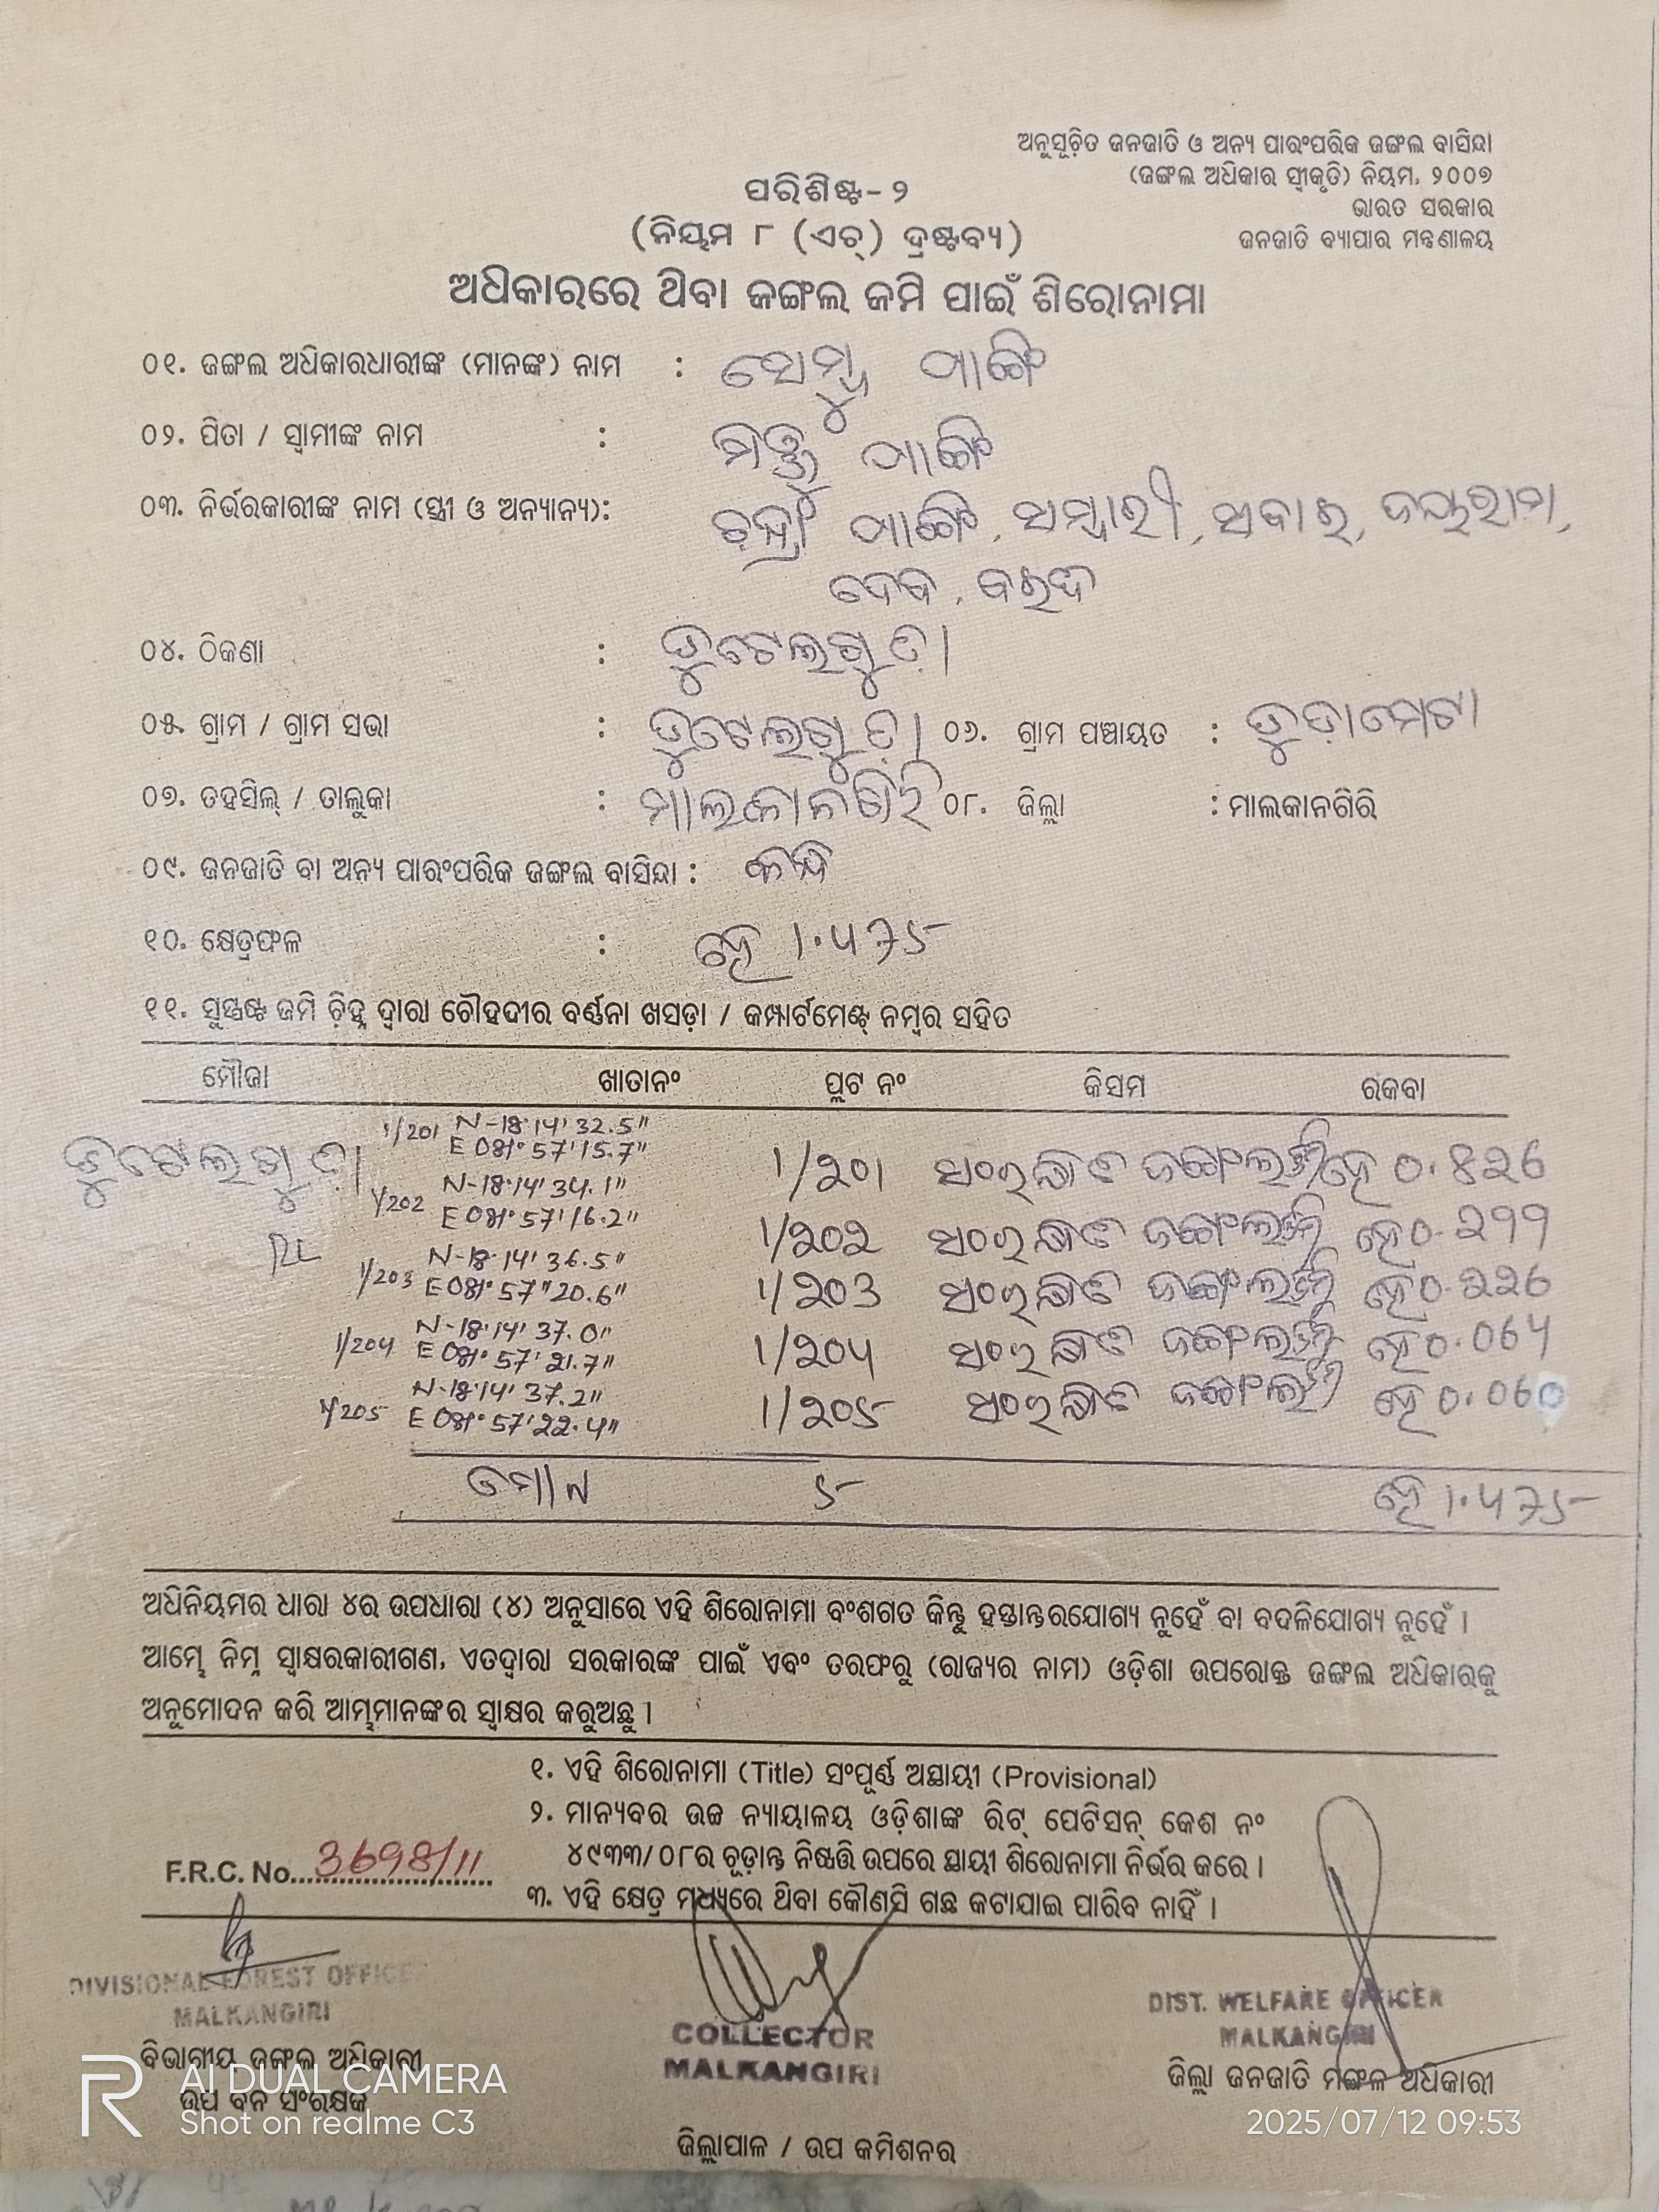 ଅନୁସୂଚିତ ଜନଜାତି ଓ ଅନ୍ୟ ପାରଂପରିକ ଜଙ୍ଗଲ ବାସିନ୍ଦା
(ଜଙ୍ଗଲ ଅଧିକାର ସ୍ୱୀକୃତି) ନିୟମ, ୨୦୦୭
ଭାରତ ସରକାର
ଜନଜାତି ବ୍ୟାପାର ମନ୍ତ୍ରଣାଳୟ
ପରିଶିଷ୍ଟ-୨
(ନିୟମ ୮ (ଏଚ୍) ଦ୍ରଷ୍ଟବ୍ୟ)
ଅଧିକାରରେ ଥିବା ଜଙ୍ଗଲ ଜମି ପାଇଁ ଶିରୋନାମା
୦୧. ଜଙ୍ଗଲ ଅଧିକାରଧାରୀଙ୍କ (ମାନଙ୍କ) ନାମ : ପାଙ୍ଗି
୦୨. ପିତା / ସ୍ୱାମୀଙ୍କ ନାମ : ପାଙ୍ଗି
୦୩. ନିର୍ଭରକାରୀଙ୍କ ନାମ (ସ୍ତ୍ରୀ ଓ ଅନ୍ୟାନ୍ୟ): ପାଙ୍ଗି, ଜୟରାମ,
ଦେବ,
୦୪. ଠିକଣା :
୦୫. ଗ୍ରାମ / ଗ୍ରାମ ସଭା : ୦୬. ଗ୍ରାମ ପଞ୍ଚାୟତ :
୦୭. ତହସିଲ୍ / ତାଲୁକା : ମାଲକାନଗିରି ୦୮. ଜିଲ୍ଲା : ମାଲକାନଗିରି
୦୯. ଜନଜାତି ବା ଅନ୍ୟ ପାରଂପରିକ ଜଙ୍ଗଲ ବାସିନ୍ଦା :
୧୦. କ୍ଷେତ୍ରଫଳ : ହେ ୧.୪୭୫
୧୧. ସୁସ୍ପଷ୍ଟ ଜମି ଚିହ୍ନ ଦ୍ୱାରା ଚୌହଦୀର ବର୍ଣ୍ଣନା ଖସଡ଼ା / କମ୍ପାର୍ଟମେଣ୍ଟ୍ ନମ୍ବର ସହିତ
ମୌଜା ଖାତାନଂ ପ୍ଲଟ ନଂ କିସମ ରକବା
1/201 N-18°14' 32.5"
E 081° 57' 15.7" 1/201 ସଂରକ୍ଷିତ ହେ
1/202 N-18°14' 34.1"
E 081° 57' 16.2" 1/202 ସଂରକ୍ଷିତ ହେ
RL
1/203 N-18°14' 36.5"
E 081° 57" 20.6" 1/203 ସଂରକ୍ଷିତ ହେ
1/204 N-18°14' 37.0"
E 081° 57' 21.7" 1/204 ସଂରକ୍ଷିତ ହେ 0.064
1/205 N-18°14' 37.2"
E 081° 57' 22.4" 1/205 ସଂରକ୍ଷିତ ହେ 0.060
ହେ ୧.୪୭୫
ଅଧିନିୟମର ଧାରା ୪ର ଉପଧାରା (୪) ଅନୁସାରେ ଏହି ଶିରୋନାମା ବଂଶଗତ କିନ୍ତୁ ହସ୍ତାନ୍ତରଯୋଗ୍ୟ ନୁହେଁ ବା ବଦଳିଯୋଗ୍ୟ ନୁହେଁ ।
ଆମ୍ଭେ ନିମ୍ନ ସ୍ୱାକ୍ଷରକାରୀଗଣ, ଏତଦ୍ୱାରା ସରକାରଙ୍କ ପାଇଁ ଏବଂ ତରଫରୁ (ରାଜ୍ୟର ନାମ) ଓଡ଼ିଶା ଉପରୋକ୍ତ ଜଙ୍ଗଲ ଅଧିକାରକୁ
ଅନୁମୋଦନ କରି ଆମ୍ଭମାନଙ୍କର ସ୍ୱାକ୍ଷର କରୁଅଛୁ ।
୧. ଏହି ଶିରୋନାମା (Title) ସଂପୂର୍ଣ୍ଣ ଅସ୍ଥାୟୀ (Provisional)
୨. ମାନ୍ୟବର ଉଚ୍ଚ ନ୍ୟାୟାଳୟ ଓଡ଼ିଶାଙ୍କ ରିଟ୍ ପେଟିସନ୍ କେଶ ନଂ
୪୯୩୩/୦୮ର ଚୂଡ଼ାନ୍ତ ନିଷ୍ପତ୍ତି ଉପରେ ସ୍ଥାୟୀ ଶିରୋନାମା ନିର୍ଭର କରେ ।
F.R.C. No. 3698/11
୩. ଏହି କ୍ଷେତ୍ର ମଧ୍ୟରେ ଥିବା କୌଣସି ଗଛ କଟାଯାଇ ପାରିବ ନାହିଁ ।
DIVISIONAL FOREST OFFICER
MALKANGIRI
ବିଭାଗୀୟ ଜଙ୍ଗଲ ଅଧିକାରୀ
ଉପ ବନ ସଂରକ୍ଷକ
COLLECTOR
MALKANGIRI
ଜିଲ୍ଲାପାଳ / ଉପ କମିଶନର
DIST. WELFARE OFFICER
MALKANGIRI
ଜିଲ୍ଲା ଜନଜାତି ମଙ୍ଗଳ ଅଧିକାରୀ
AI DUAL CAMERA
Shot on realme C3
2025/07/12 09:53